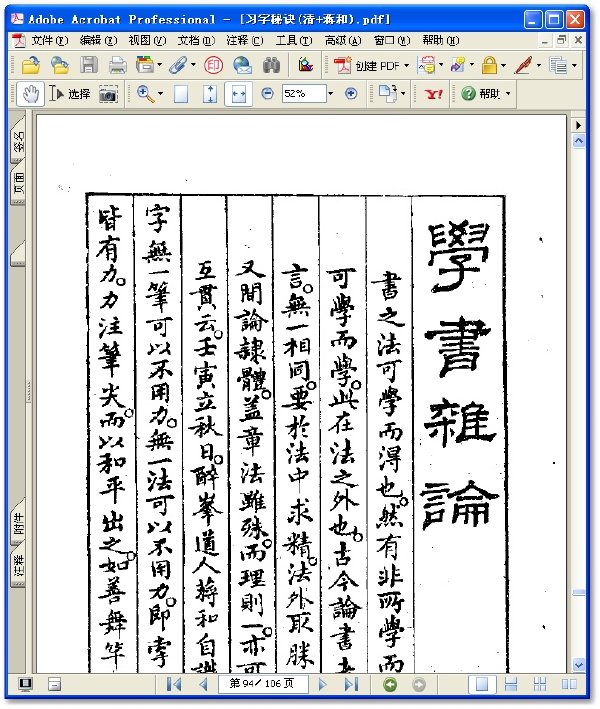 Adobe Acrobat Professional - [习字秘诀(清+蒋和).pdf]
文件(F) 编辑(E) 视图(V) 文档(D) 注释(C) 工具(T) 高级(A) 窗口(W) 帮助(H)
创建 PDF
选择
52%
Y!
帮助
签名
页面
附件
注释
學書雜論
書之法可學而得也。然有非所學而
可學而學。此在法之外也。古今論書者
言。無一相同。要於法中求精。法外取勝
又間論隷體。蓋章法雖殊。而理則一。亦可
互貫云。壬寅立秋日。醉峯道人蔣和自識
字無一筆可以不用力。無一法可以不用力。即牽
皆有力。力注筆尖。而以和平出之。如善舞竿
第 94/ 106 页